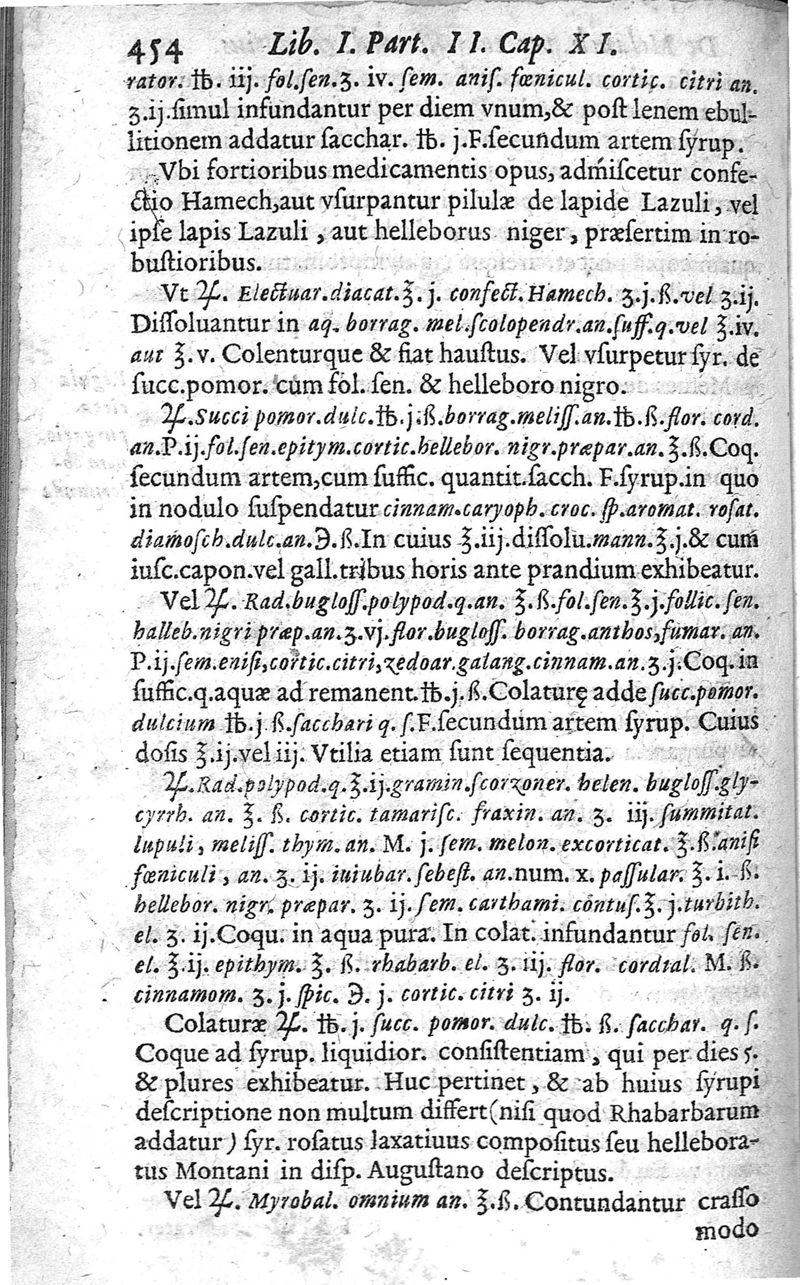 454 Lib. I. Part. II. Cap. XI.
rator. ℔. iij. fol.ſen.ʒ. iv. ſem. aniſ. fœnicul. cortic. citri an.
ʒ.ij.ſimul infundantur per diem vnum,& poſt lenem ebul-
litionem addatur ſacchar. ℔. j.F.ſecundum artem ſyrup.
Vbi fortioribus medicamentis opus, admiſcetur confe-
ctio Hamech,aut vſurpantur pilulæ de lapide Lazuli, vel
ipſe lapis Lazuli, aut helleborus niger, præſertim in ro-
buſtioribus.
Vt ♃. Electuar.diacat.℥. j. confect.Hamech. ʒ.j.ß.vel ʒ.ij.
Diſſoluantur in aq. borrag. mel.ſcolopendr.an.ſuff.q.vel ℥.iv.
aut ℥.v. Colenturque & fiat hauſtus. Vel vſurpetur ſyr. de
ſucc.pomor. cum fol. ſen. & helleboro nigro.
♃.Succi pomor.dulc.℔.j.ß.borrag.meliſſ.an.℔.ß.flor. cord.
an.P.ij.fol.ſen.epitym.cortic.hellebor. nigr.præpar.an. ℥.ß.Coq.
ſecundum artem,cum ſuffic. quantit.ſacch. F.ſyrup.in quo
in nodulo ſuſpendatur cinnam.caryoph. croc. ſp.aromat. roſat.
diamoſch.dulc.an.℈.ß.In cuius ℥.iij.diſſolu.mann.℥.j.& cum
iuſc.capon.vel gall.tribus horis ante prandium exhibeatur.
Vel ♃. Rad.bugloſſ.polypod.q.an. ℥.ß.fol.ſen.℥.j.follic.ſen.
halleb.nigri præp.an.ʒ.vj.flor.bugloſſ. borrag.anthos,fumar. an.
P.ij.ſem.eniſi,cortic.citri,zedoar.galang.cinnam.an.ʒ.j.Coq.in
ſuffic.q.aquæ ad remanent.℔.j.ß.Colaturę adde ſucc.pomor.
dulcium ℔.j.ß.ſacchari q. ſ.F.ſecundum artem ſyrup. Cuius
doſis ℥.ij.vel iij. Vtilia etiam ſunt ſequentia.
♃.Rad.polypod.q.℥.ij.gramin.ſcorzoner. helen. bugloſſ.gly-
cyrrh. an. ℥. ß. cortic. tamariſc. fraxin. an. ʒ. iij. ſummitat.
lupuli, meliſſ. thym. an. M. j. ſem. melon. excorticat. ℥.ß.aniſi
fœniculi, an. ʒ. ij. iuiubar.ſebeſt. an.num. x. paſſular. ℥. i. ß.
hellebor. nigr. præpar. ʒ. ij.ſem. carthami. contuſ.℥. j.turbith.
el. ʒ. ij.Coqu. in aqua pura. In colat. infundantur fol. ſen.
el. ℥.ij. epithym. ℥. ß. rhabarb. el. ʒ. iij. flor. cordial. M. ß.
cinnamom. ʒ. j. ſpic. ℈. j. cortic. citri ʒ. ij.
Colaturæ ♃. ℔. j. ſucc. pomor. dulc. ℔. ß. ſacchar. q. ſ.
Coque ad ſyrup. liquidior. conſiſtentiam, qui per dies 5.
& plures exhibeatur. Huc pertinet, & ab huius ſyrupi
deſcriptione non multum differt(niſi quod Rhabarbarum
addatur) ſyr. roſatus laxatiuus compoſitus ſeu hellebora-
tus Montani in diſp. Auguſtano deſcriptus.
Vel ♃. Myrobal. omnium an. ℥.ß. Contundantur craſſo
modo